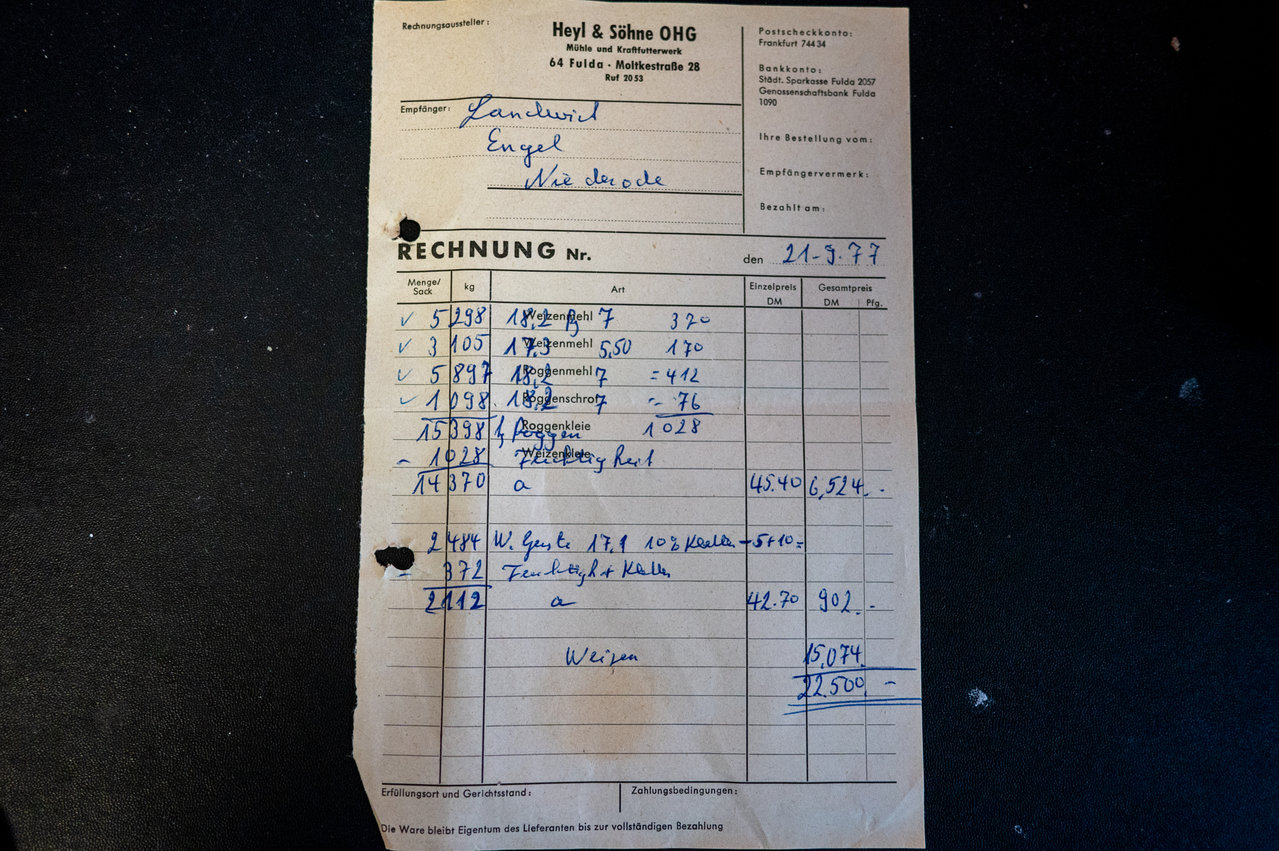 Rechnungsaussteller:
Heyl & Söhne OHG
Mühle und Kraftfutterwerk
64 Fulda · Moltkestraße 28
Ruf 2053
Postscheckkonto:
Frankfurt 744 34
Bankkonto:
Städt. Sparkasse Fulda 2057
Genossenschaftsbank Fulda
1090
Ihre Bestellung vom:
Empfängervermerk:
Bezahlt am:
Empfänger: Landwirt
Engel
Niederode
RECHNUNG Nr. den 21-9.77
Menge/Sack kg Art Einzelpreis DM Gesamtpreis DM Pfg.
✓ 5 298 Weizenmehl 18,2 7 370
✓ 3 105 Weizenmehl 17,3 5,50 170
✓ 5 897 Roggenmehl 18,2 7 = 412
✓ 1 098 Roggenschrot 18,2 7 = 76
15 398 Roggenkleie Roggen 1028
- 1028 Weizenkleie Feuchtigkeit
14 370 a 45.40 6,524.-
2 484 W. Gerste 17,1 10%
- 372
2112 a 42.70 902.-
Weizen 15,074.
22.500 -
Erfüllungsort und Gerichtsstand: Zahlungsbedingungen:
Die Ware bleibt Eigentum des Lieferanten bis zur vollständigen Bezahlung